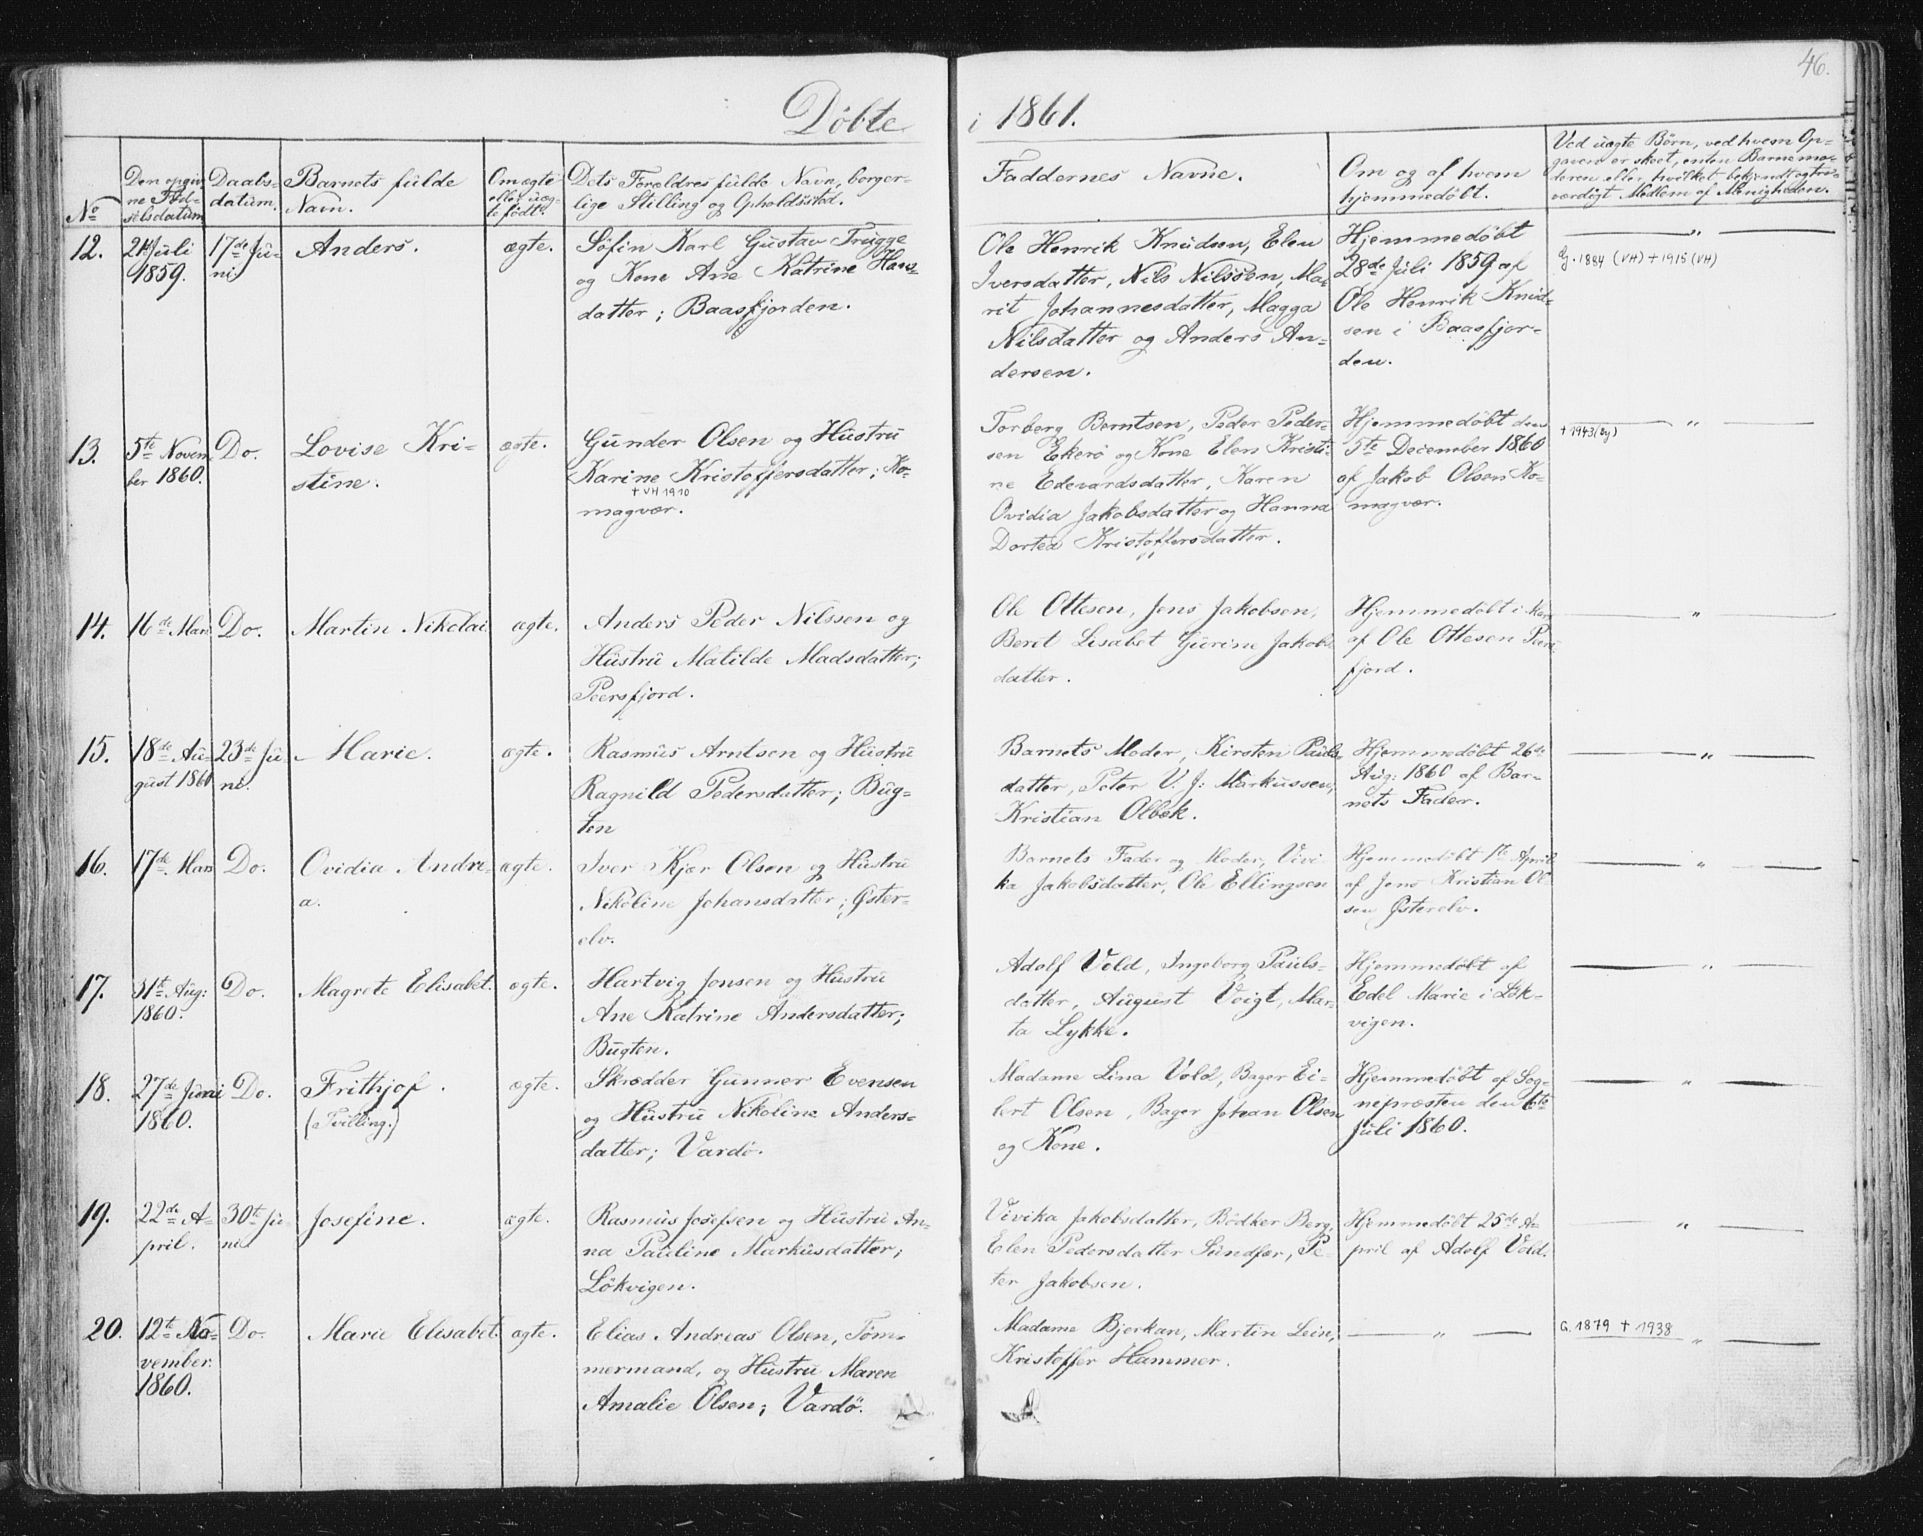 46.
Döbte i 1861.
No
Den opgiv-
ne Föd-
selsdatum
Daabs-
datum.
Barnets fulde
Navn.
Om ægte
eller uæg-
te födt.
Dets Forældres fulde Navn, borger-
lige Stilling og Opholdssted.
Faddernes Navne.
Om og af hvem
hjemmedöbt.
Ved uægte Börn, ved hvem Op-
gaven er skeet, enten Barnemo-
deren eller hvilket bekjendt og tro-
værdigt Medlem af Menigheden.
12.
Juli
1859.
17de Ju-
ni
Anders.
ægte.
Söfin Karl Gustav Trygge
og Kone Ane Katrine Hans-
datter; Baasfjorden.
Ole Henrik Knudsen, Elen
Iversdatter, Nils Nilssen, Ma-
rit Johannesdatter, Magga
Nilsdatter og Anders An-
dersen.
Hjemmedöbt
28de Juli 1859 af
Ole Henrik Knud-
sen i Baasfjor-
den.
"
G. 1884 (VH) + 1915 (VH)
13.
5te Novem
ber 1860.
Do.
Lovise Kri-
stine.
ægte.
Gunder Olsen og Hustru
Karine Kristoffersdatter; Ko-
+ VH 1910
magvær.
Torberg Berntsen, Peder Peder-
sen Ekerö og Kone Elen Kristi-
ne Edevardsdatter, Karen
Ovidia Jakobsdatter og Hanna
Dortea Kristoffersdatter.
Hjemmedöbt den
5te December 1860
af Jakob Olsen Ko-
magvær.
"
+ 1943 (By)
14.
16de Mars
Do.
Martin Nikolai
ægte.
Anders Peder Nilssen og
Hustru Matilde Madsdatter;
Peersfjord.
Ole Ottesen, Jens Jakobsen,
Beret Lisabet Gurine Jakobs-
datter.
Hjemmedöbt i Mars
af Ole Ottesen Peers-
fjord.
"
15.
18de Au-
gust 1860
23de Ju-
ni.
Marie.
ægte.
Rasmus Arntsen og Hustru
Ragnild Pedersdatter; Bug-
ten
Barnets Moder, Kirsten Pauls-
datter, Peter V. J: Markussen,
Kristian Olbek.
Hjemmedöbt 26de
Aug: 1860 af Bar-
nets Fader.
"
16.
17de Mars
Do.
Ovidia Andre-
a.
ægte.
Iver Kjær Olsen og Hustru
Nikoline Johansdatter; Öster-
elv.
Barnets Fader og Moder, Vivi-
ka Jakobsdatter, Ole Ellingsen
Hjemmedöbt 1ste April
af Jens Kristian Ol-
sen Österelv.
"
17.
31te Aug:
1860.
Do.
Magrete Elisabet.
ægte.
Hartvig Jonsen og Hustru
Ane Katrine Andersdatter;
Bugten.
Adolf Vold, Ingeborg Pauls-
datter, August Voigt, Mar-
ta Lykke.
Hjemmedöbt af
Edel Marie i Lök-
vigen.
"
18.
27de Juni
1860.
Do.
Frithjof.
(Tvilling.)
ægte.
Skrædder Gunner Evensen
og Hustru Nikoline Anders-
datter; Vardö.
Madame Lina Vold, Bager Ei-
lert Olsen, Bager Johan Olsen
og Kone.
Hjemmedöbt af Sog-
nepræsten den 6te
Juli 1860.
"
19.
22de A-
pril.
30te Ju-
ni.
Josefine.
ægte.
Rasmus Josefsen og Hustru An-
na Pauline Markusdatter;
Lökvigen.
Vivika Jakobsdatter, Bödker Berg,
Elen Pedersdatter Sundfær, Pe-
ter Jakobsen.
Hjemmedöbt 25de A-
pril af Adolf Vold.
"
20.
12te No-
vember
1860.
Do.
Marie Elisabet.
ægte.
Elias Andreas Olsen, Töm-
mermand, og Hustru Maren
Amalie Olsen; Vardö.
Madame Bjerkan, Martin Lein,
Kristoffer Hammer.
"
G. 1879 + 1938
"